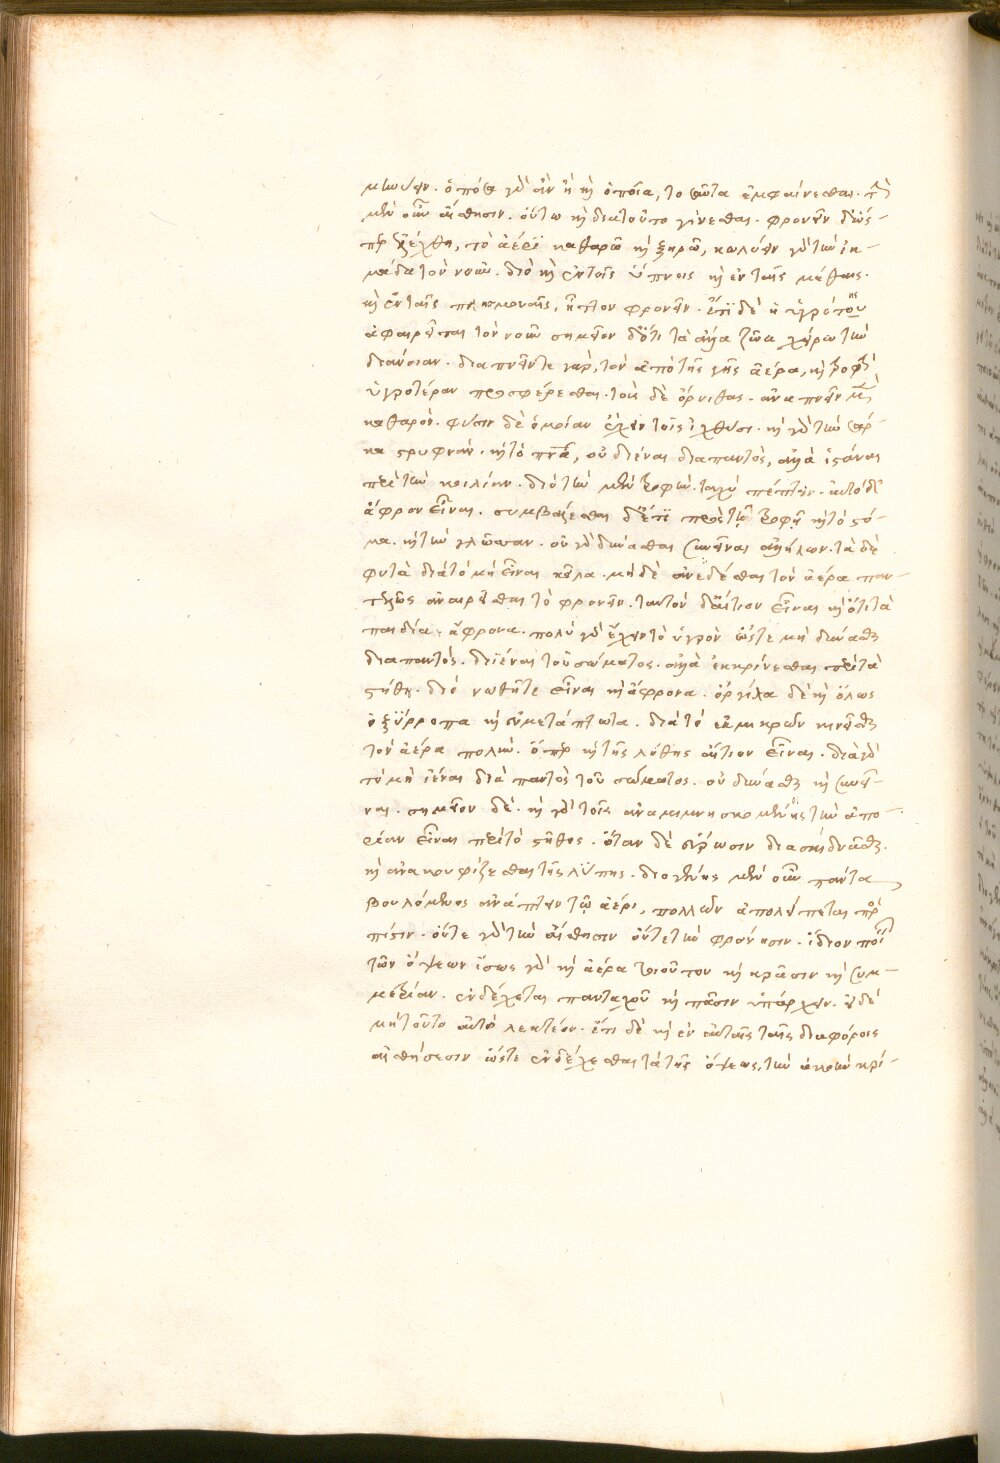 μιωύειν. ὁπόσα γὰρ ἂν ᾖ καὶ ὁποῖα, τοσαῦτα ἐμφαίνεσθαι. τὴν
μὲν οὖν αἴσθησιν. οὕτω καὶ διατοῦτο γίνεσθαι. φρονεῖν δ' ὥσ-
περ ἐλέχθη, τὸ ἀέρι καθαρῶ καὶ ξηρῶ, κωλύειν γὰρ τὴν ἰκ-
μάδα τὸν νοῦν. διὸ καὶ ἐν τοῖς ὕπνοις καὶ ἐν ταῖς μέθαις.
καὶ ἐν ταῖς πλησμοναῖς, ἧττον φρονεῖν. ἔτι δὲ ἡ ὑγρότης
ἀφαιρεῖται τὸν νοῦν σημεῖον διότι τὰ ἄλλα ζῶα χείρω τὴν
διάνοιαν. διαπνεῖν τε γὰρ, τὸν ἀπὸ τῆς γῆς ἀέρα, καὶ τροφὴν
ὑγροτέραν προσφέρεσθαι. τοὺς δὲ ὄρνιθας. ἀναπνεῖν μὲν
καθαρὸν. φύσιν δὲ ὁμοίαν ἔχειν τοῖς ἰχθύσι. καὶ γὰρ τὴν σάρ-
κα στρυφνὰν. καὶ τὸ πνεῦμα, οὐ διϊέναι διαπαντὸς, ἀλλὰ ἱστάναι
περὶ τὴν κοιλίαν. διὸ τὴν μὲν τροφὴν. ταχὺ πέπτειν. αὐτὸ δὲ
ἄφρον εἶναι. συμβάλεσθαι δέ τι πρὸς τῆ τροφῆ καὶ τὸ στό-
μα. καὶ τὴν γλῶτταν. οὐ γὰρ δύνασθαι συνεῖναι ἀλλήλων. τὰ δὲ
φυτὰ διὰ τὸ μὴ εἶναι κοῖλα. μηδὲ ἀναδέχεσθαι τὸν ἀέρα παν-
τελῶς ἀναιρεῖσθαι τὸ φρονεῖν. ταυτὸν δ' αἴτιον εἶναι καὶ ὅτι τὰ
παιδία. ἄφρονα. πολὺ γὰρ ἔχειν τὸ ὑγρὸν ὥστε μὴ δύνασθαι
διαπαντὸς. διϊέναι τοῦ σώματος. ἀλλὰ ἐκκρίνεσθαι περὶ τὰ
στήθη. διὸ νωθῆ τε εἶναι καὶ ἄφρονα. ὀργίλα δὲ καὶ ὅλως
ὀξύρροπα καὶ εὐμετάπτωτα. διὰ τὸ ἐκ μικρῶν κινεῖσθαι
τὸν ἀέρα πολὺν. ὅπερ καὶ τῆς λήθης αἴτιον εἶναι. διὰ γὰρ
τὸ μὴ ἰέναι διὰ παντὸς τοῦ σώματος. οὐ δύνασθαι καὶ συνεῖ-
ναι. σημεῖον δὲ. καὶ γὰρ τοῖς ἀναμιμνησκομένοις τὴν ἀπο-
ρίαν εἶναι περὶ τὸ στῆθος. ὅταν δὲ εὕρωσιν διασκίδνασθαι.
καὶ ἀνακουφίζεσθαι τῆς λύπης. διογένης μὲν οὖν πάντα
βουλόμενος ἀνάπτειν τῶ ἀέρι, πολλῶν ἀπολείπεται πρὸς
πίστιν. οὔτε γὰρ τὴν αἴσθησιν οὔτε τὴν φρόνησιν. ἴδιον ποιεῖ
τῶν ὄψεων ἴσως γὰρ καὶ ἀέρα τοιοῦτον καὶ κρᾶσιν καὶ συμ-
μετρίαν. ἐνδέχεται πανταχοῦ καὶ πᾶσιν ὑπάρχειν. εἰ δὲ
μὴ τοῦτο αὐτὸ λεκτέον. ἔτι δὲ καὶ ἐν αὐταῖς ταῖς διαφόροις
αἰσθήσεσιν ὥστε ἐνδέχεσθαι τὰ τῆς ὄψεως, τὴν ἀκοὴν κρί-